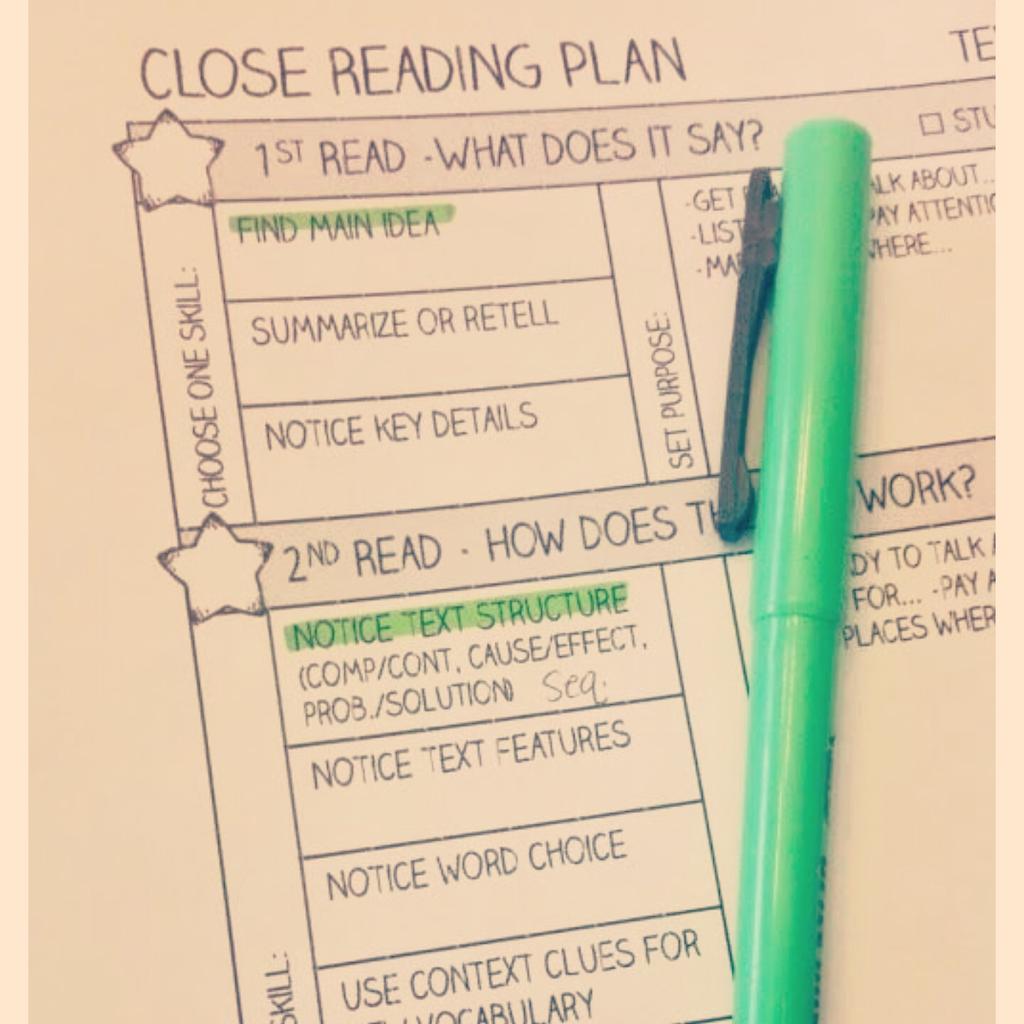 CLOSE READING PLAN
1ST READ - WHAT DOES IT SAY?
CHOOSE ONE SKILL:
FIND MAIN IDEA
SUMMARIZE OR RETELL
NOTICE KEY DETAILS
SET PURPOSE:
-GET
ABOUT...
WHERE...
2ND READ - HOW DOES
WORK?
NOTICE TEXT STRUCTURE
(COMP/CONT, CAUSE/EFFECT,
PROB./SOLUTION) Seq.
NOTICE TEXT FEATURES
NOTICE WORD CHOICE
USE CONTEXT CLUES FOR
VOCABULARY
TO TALK
FOR... -PAY
PLACES
SKILL: